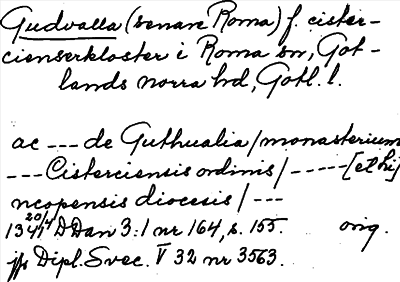 Gudvalla (senare Roma) f. cister-
cienserkloster i Roma sn, Got-
lands norra hd, Gotl. l.
ac --- de Guthualia /monasterium
--- Cisterciensis ordinis/ ----- [et hi]
ncopensis diocesis / ---
1341 20/4 DDan 3:1 nr 164, s. 155. orig.
jfr Dipl. Svec. V 32 nr 3563.